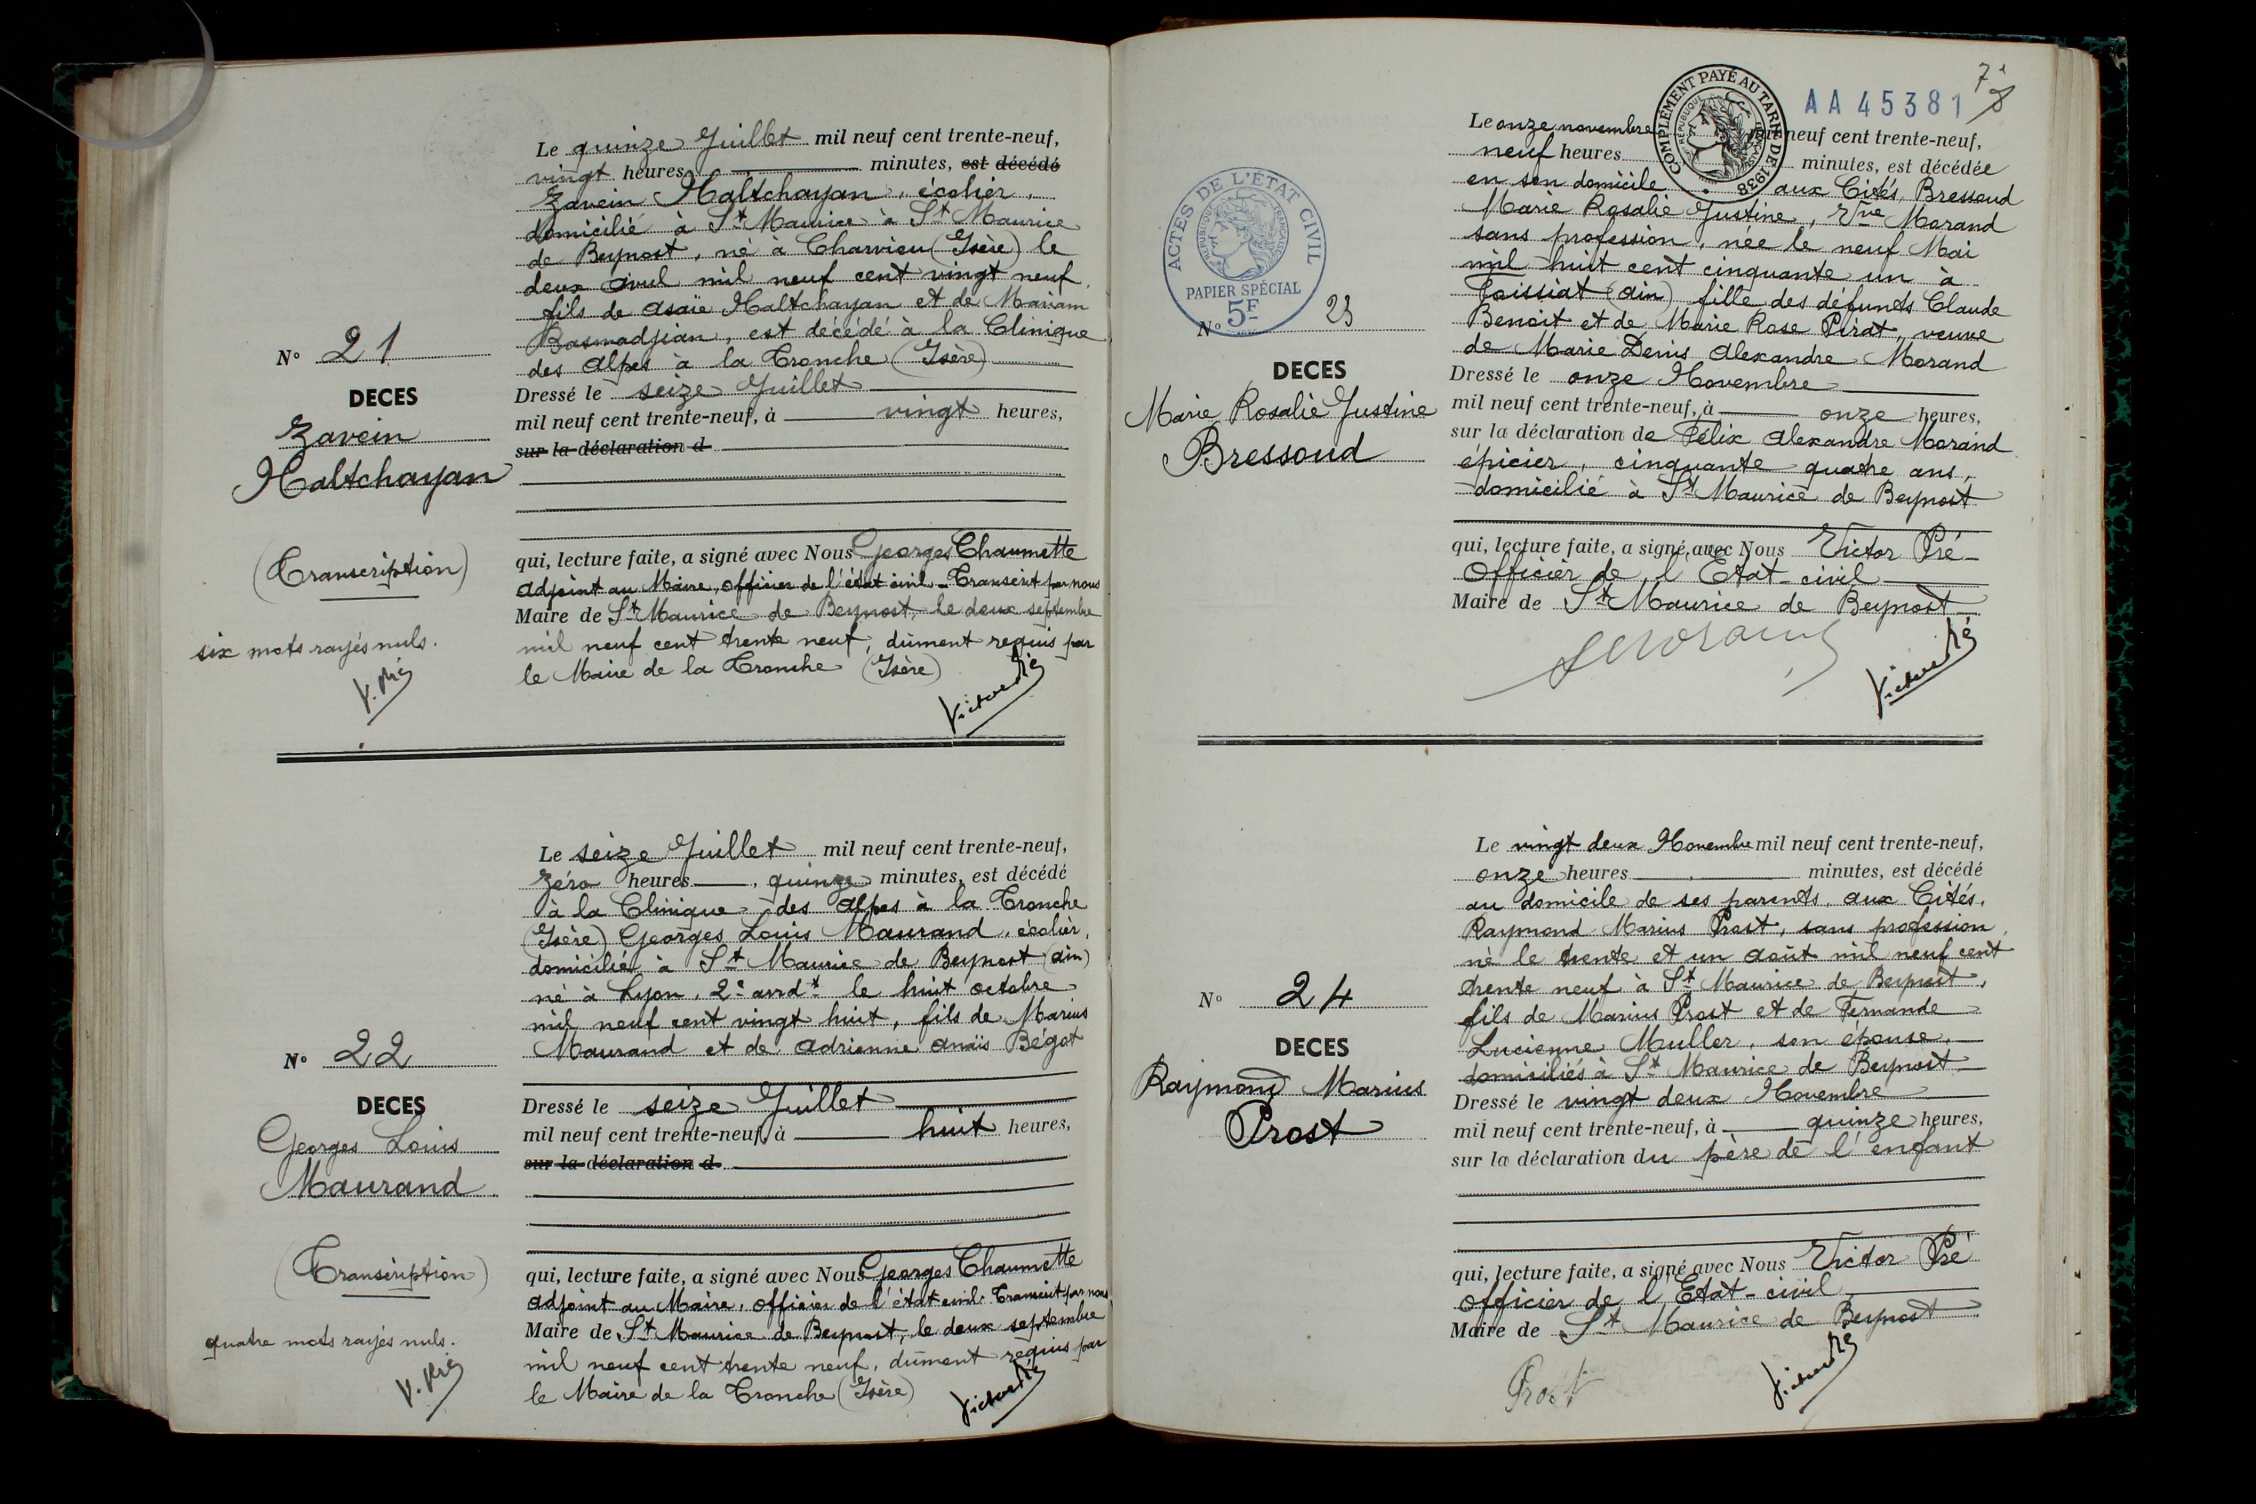 N° 21
DECES
Zavein
Haltchayan
(Transcription)
six mots rayés nuls.
V. Pré
Le quinze Juillet mil neuf cent trente-neuf,
vingt heures, minutes, est décédé
Zavein Haltchayan, écolier,
domicilié à St Maurice à St Maurice
de Beynost, né à Charvieu (Isère) le
deux avril mil neuf cent vingt neuf,
fils de Asaïe Haltchayan et de Mariam
Basmadjian, est décédé à la Clinique
des Alpes à la Tronche (Isère)
Dressé le seize Juillet
mil neuf cent trente-neuf, à vingt heures,
sur la déclaration d
qui, lecture faite, a signé avec Nous Georges Chaumette
Adjoint au Maire, officier de l'état civil - Transcrit par nous
Maire de St Maurice de Beynost, le deux septembre
mil neuf cent trente neuf, dûment requis par
le Maire de la Tronche (Isère)
Victor Pré
N° 22
DECES
Georges Louis
Maurand
(Transcription)
quatre mots rayés nuls.
V. Pré
Le seize Juillet mil neuf cent trente-neuf,
zéro heures, quinze minutes, est décédé
à la Clinique des Alpes à la Tronche
(Isère) Georges Louis Maurand, écolier,
domicilié à St Maurice de Beynost (Ain)
né à Lyon, 2e arrdt le huit octobre
mil neuf cent vingt huit, fils de Marius
Maurand et de Adrienne Anaïs Bégot
Dressé le seize Juillet
mil neuf cent trente-neuf, à huit heures,
sur la déclaration d
qui, lecture faite, a signé avec Nous Georges Chaumette
Adjoint au Maire, officier de l'état civil. Transcrit par nous
Maire de St Maurice de Beynost, le deux septembre
mil neuf cent trente neuf, dûment requis par
le Maire de la Tronche (Isère)
Victor Pré
AA 45381
7
8
COMPLÉMENT PAYÉ AU TARIF DE 1938
RÉPUBLIQUE FRANÇAISE
ACTES DE L'ÉTAT CIVIL
RÉPUBLIQUE FRANÇAISE
PAPIER SPÉCIAL
5F
N° 23
DECES
Marie Rosalie Justine
Bressoud
Le onze novembre mil neuf cent trente-neuf,
neuf heures minutes, est décédée
en son domicile aux Cités, Bressoud
Marie Rosalie Justine, Vve Morand
sans profession, née le neuf Mai
mil huit cent cinquante un à
Foissiat (Ain) fille des défunts Claude
Benoit et de Marie Rose Pirat, veuve
de Marie Denis Alexandre Morand
Dressé le onze Novembre
mil neuf cent trente-neuf, à onze heures,
sur la déclaration de Félix Alexandre Morand
épicier, cinquante quatre ans,
domicilié à St Maurice de Beynost
qui, lecture faite, a signé avec Nous Victor Pré
Officier de l'Etat-civil
Maire de St Maurice de Beynost
Morand
Victor Pré
N° 24
DECES
Raymond Marius
Prost
Le vingt deux Novembre mil neuf cent trente-neuf,
onze heures minutes, est décédé
au domicile de ses parents, aux Cités,
Raymond Marius Prost, sans profession,
né le trente et un août mil neuf cent
trente neuf à St Maurice de Beynost,
fils de Marius Prost et de Fernande
Lucienne Muller, son épouse,
domiciliés à St Maurice de Beynost
Dressé le vingt deux Novembre
mil neuf cent trente-neuf, à quinze heures,
sur la déclaration du père de l'enfant
qui, lecture faite, a signé avec Nous Victor Pré
Officier de l'Etat-civil
Maire de St Maurice de Beynost
Prost
Victor Pré